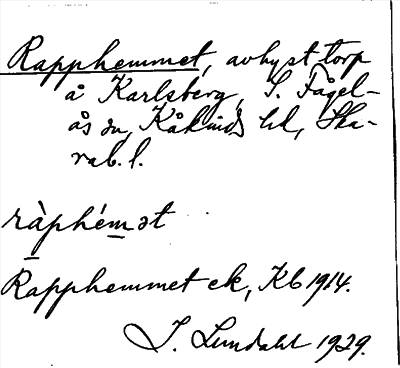 Rapphemmet, avhyst torp
å Karlsberg, S. Fågel-
ås sn, Kåkinds hd, Ska-
rab. l.
ràphém̲ət
Rapphemmet ek, Kb 1914.
J. Lundahl 1929.